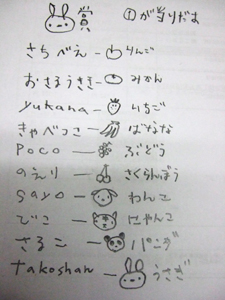 賞 ①が当りだよ
さちべえ ー りんご
おさるうきき ー みかん
yukana ー いちご
きゃべっこ ー ばなな
poco ー ぶどう
のえり ー さくらんぼう
gayo ー わんこ
びこ ー にゃんこ
さるこ ー パンダ
takoshan ー うさぎ